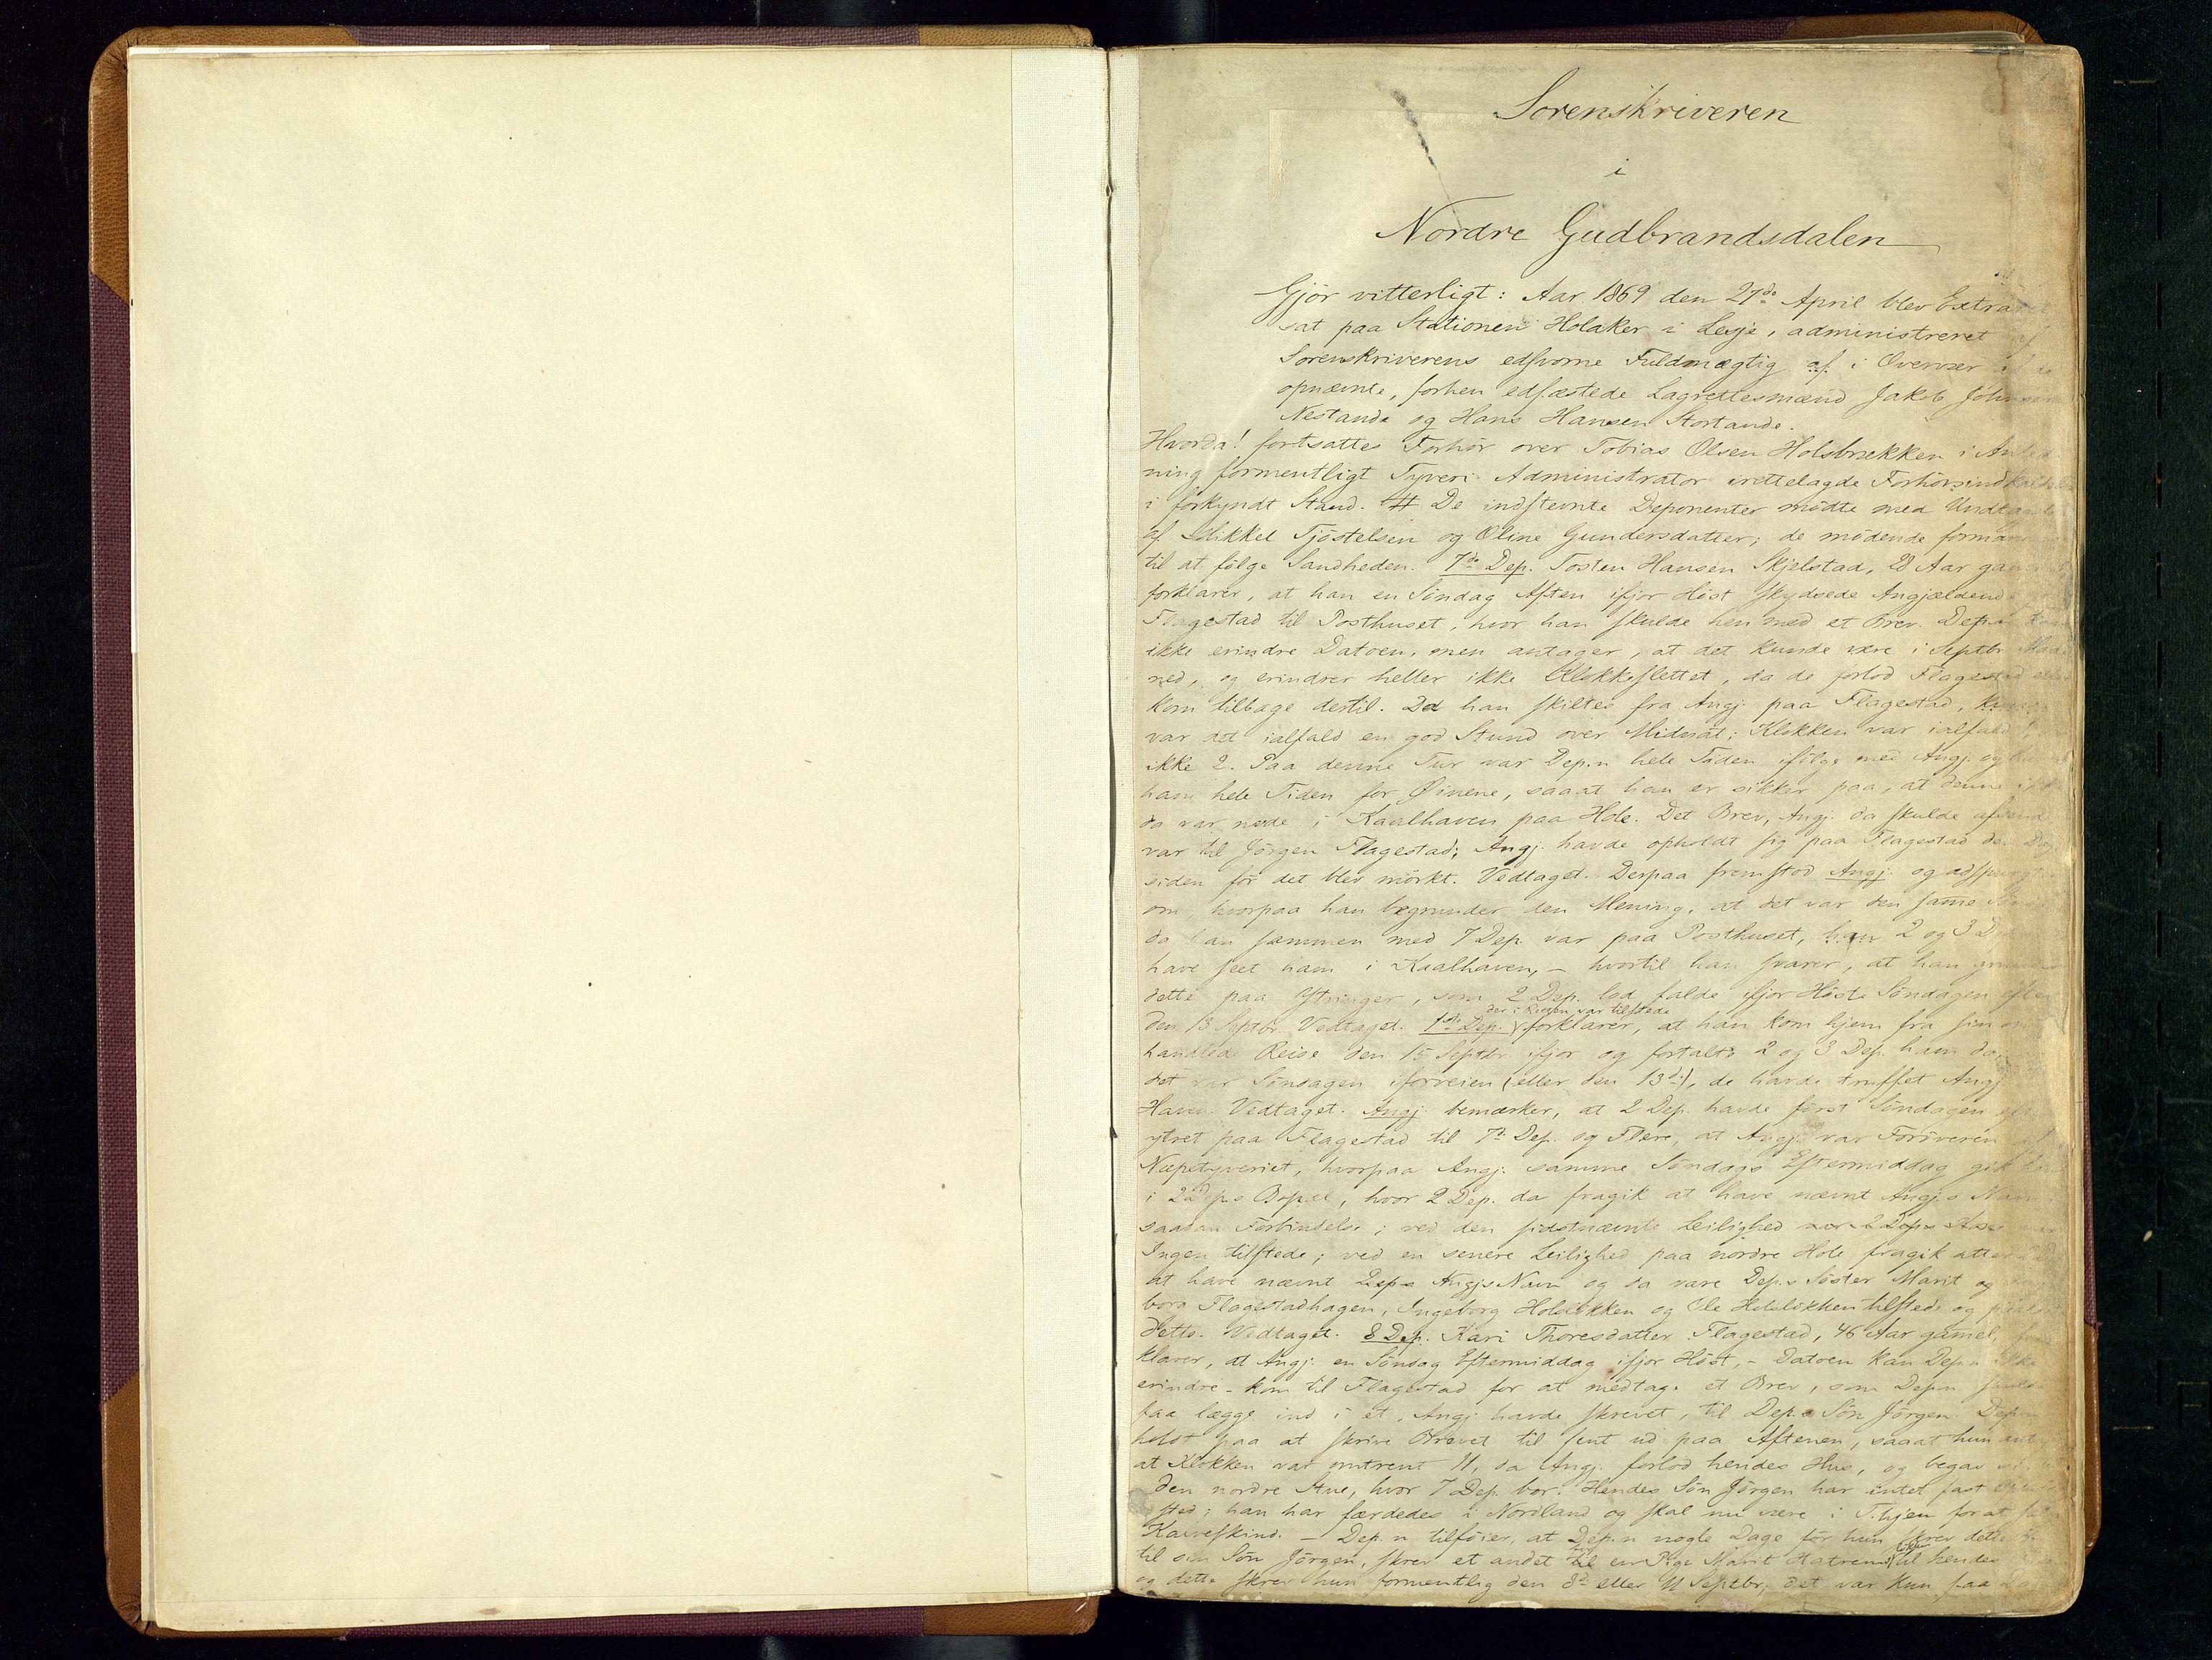 Sorenskriveren
i
Nordre Gudbrandsdalen
Gjör vitterligt: Aar 1869 den 27de April blev Extraret
sat paa Stationen Holaker i Lesje, administreret af
Sorenskriverens edsvorne Fuldmægtig af i Overvær af de
opnævnte, forhen edfæstede Lagrettesmænd Jakob Johnsen
Nestande og Hans Hansen Stortande.
Hvorda! fortsattes Forhör over Tobias Olsen Holsbrækken i Anled
ning formentligt Tyveri. Administrator irettelagde Forhörsindkaldelse
i forkyndt Stand. De indstevnte Deponenter mödte med Undtagelse
af Mikkel Tjöstelsen og Oline Gundersdatter; de mödende formanedes
til at fölge Sandheden. 7de Dep. Tosten Hansen Skjelstad, 28 Aar gammel
forklarer, at han en Söndag Aften ifjor Höst skydsede Angjældende
Flagestad til Posthuset, hvor han skulde hen med et Brev. Dep.n kan
ikke erindre Datoen, men antager, at det kunde være i Septbr Maa
ned, og erindrer heller ikke Klokkeslettet, da de forlod Flagestad eller
kom tilbage dertil. Da han skiltes fra Angj. paa Flagestad,
var det ialfald en god Stund over Midnat; Klokken var ialfald
ikke 2. Paa denne Tur var Dep.n hele Tiden ifölge med Angj. og havde
ham hele Tiden for Öinene, saaat han er sikker paa, at denne ikke
da var nede i Kaalhaven paa Hole. Det Brev, Angj. da skulde afsende
var til Jörgen Flagestad; Angj. havde opholdt sig paa Flagestad den Dag
siden för det blev mörkt. Vedtaget. Derpaa fremstod Angj. og adspurgt
om, hvorpaa han begrunder den Mening, at det var den samme
da han sammen med 7 Dep. var paa Posthuset, 2 og 3 D
have seet ham i Kaalhaven, – hvortil han svarer, at han grunder
dette paa Ytringer, som 2 Dep. lod falde ifjor Höst Söndagen efter
der i Retten var tilstede
den 13 Septbr. Vedtaget. 1ste Dep. forklarer, at han kom hjem fra sin om
handlede Reise den 15 Septbr ifjor og fortalte 2 og 3 Dep. ham da
det var Söndagen iforveien (eller den 13de), de havde truffet Angj
Haven. Vedtaget. Angj. bemærker, at 2 Dep. havde först Söndagen
ytret paa Flagestad til 7de Dep. og Flere, at Angj. var Foröveren
Næpetyveriet, hvorpaa Angj. samme Söndags Eftermiddag gik
i 2 Dep.s Bopæl, hvor 2 Dep. da fragik at have nævnt Angj.s Navn
saadan Forbindelse; ved den sidstnævnte Leilighed var
Ingen tilstede; ved en senere Leilighed paa nordre Hole fragik atter
at have nævnt Angjs Navn og da vare Dep.s Söster Marit og
borg Flagestadhagen, Ingeborg Holelökken og Ole Holelökken tilstede og
dette. Vedtaget. 8 Dep. Kari Thoresdatter Flagestad, 46 Aar gamel,
klarer, at Angj. en Söndag Eftermiddag ifjor Höst, – Datoen kan Dep.n ikke
erindre – kom til Flagestad for at medtage et Brev, som Dep.n
faa lægge ind i et, Angj. havde skrevet, til Dep.s Sön Jörgen. Dep.n
holdt paa at skrive Brevet til sent ud paa Aftenen, saaat hun
at Klokken var omtrent 11, da Angj. forlod hendes Hus, og begav
den nordre Stue, hvor 7 Dep. bor. Hendes Sön Jörgen har intet fast
sted; han har færdedes i Nordland og skal nu være i T.hjem for at
Kalveskind. – Dep.n tilföier, at Dep.n nogle Dage för hun skrev dette
til sin Sön Jörgen, skrev et andet til en Pige Marit Hatrem til hendes
og dette skrev hun formentlig den 8de eller 11 Septbr; det var kun paa